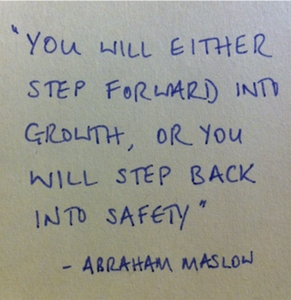 "YOU WILL EITHER
STEP FORWARD INTO
GROWTH, OR YOU
WILL STEP BACK
INTO SAFETY"
- ABRAHAM MASLOW